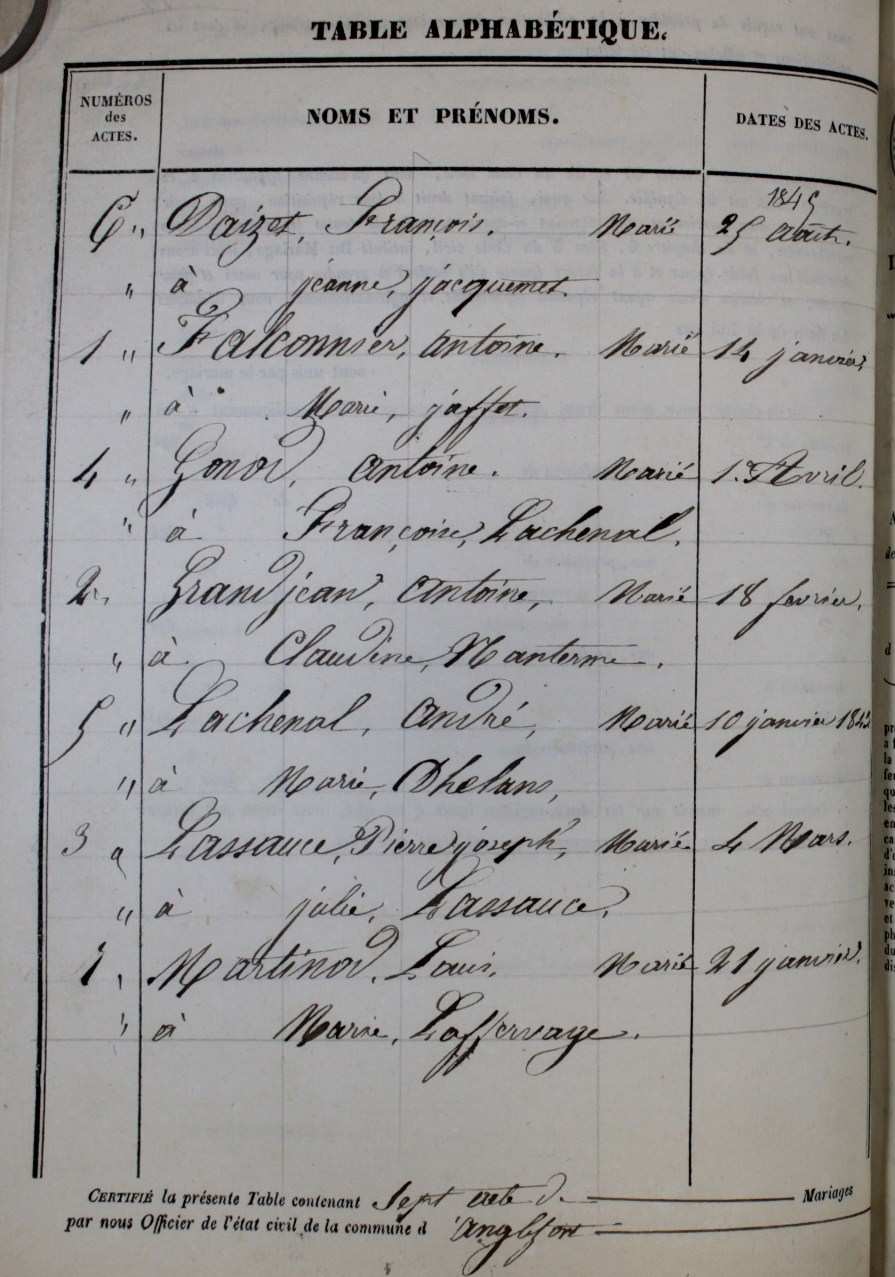 TABLE ALPHABÉTIQUE.
NUMÉROS des ACTES. NOMS ET PRÉNOMS. DATES DES ACTES.
1845
6 " Daizet, François. Marié 25 Août.
" à jeanne, jacquemet.
1 " Falconnier, antoine. Marié 14 janvier
" à Marie, jaffet.
4 " Gonod, antoine. Marié 1er Avril.
" à Françoise, Lachenal.
2 " Grandjean, antoine, Marié 18 fevrier,
" à Claudine, Nanterme.
5 " Lachenal, andré, Marié 10 janvier
" à Marie, Dhelans,
3 " Lassauce, Pierre joseph, Marié 4 Mars.
" à julie, Lassauce,
1 " Martinod, Louis, Marié 21 janvier,
" à Marie, Laffervage.
CERTIFIÉ la présente Table contenant Sept acte de Mariages
par nous Officier de l'état civil de la commune d'Anglefort